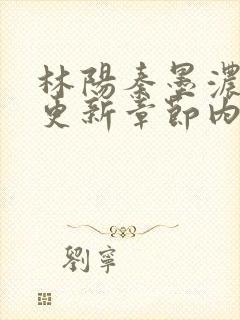 林陽秦墨濃
更新章節內
劉寧